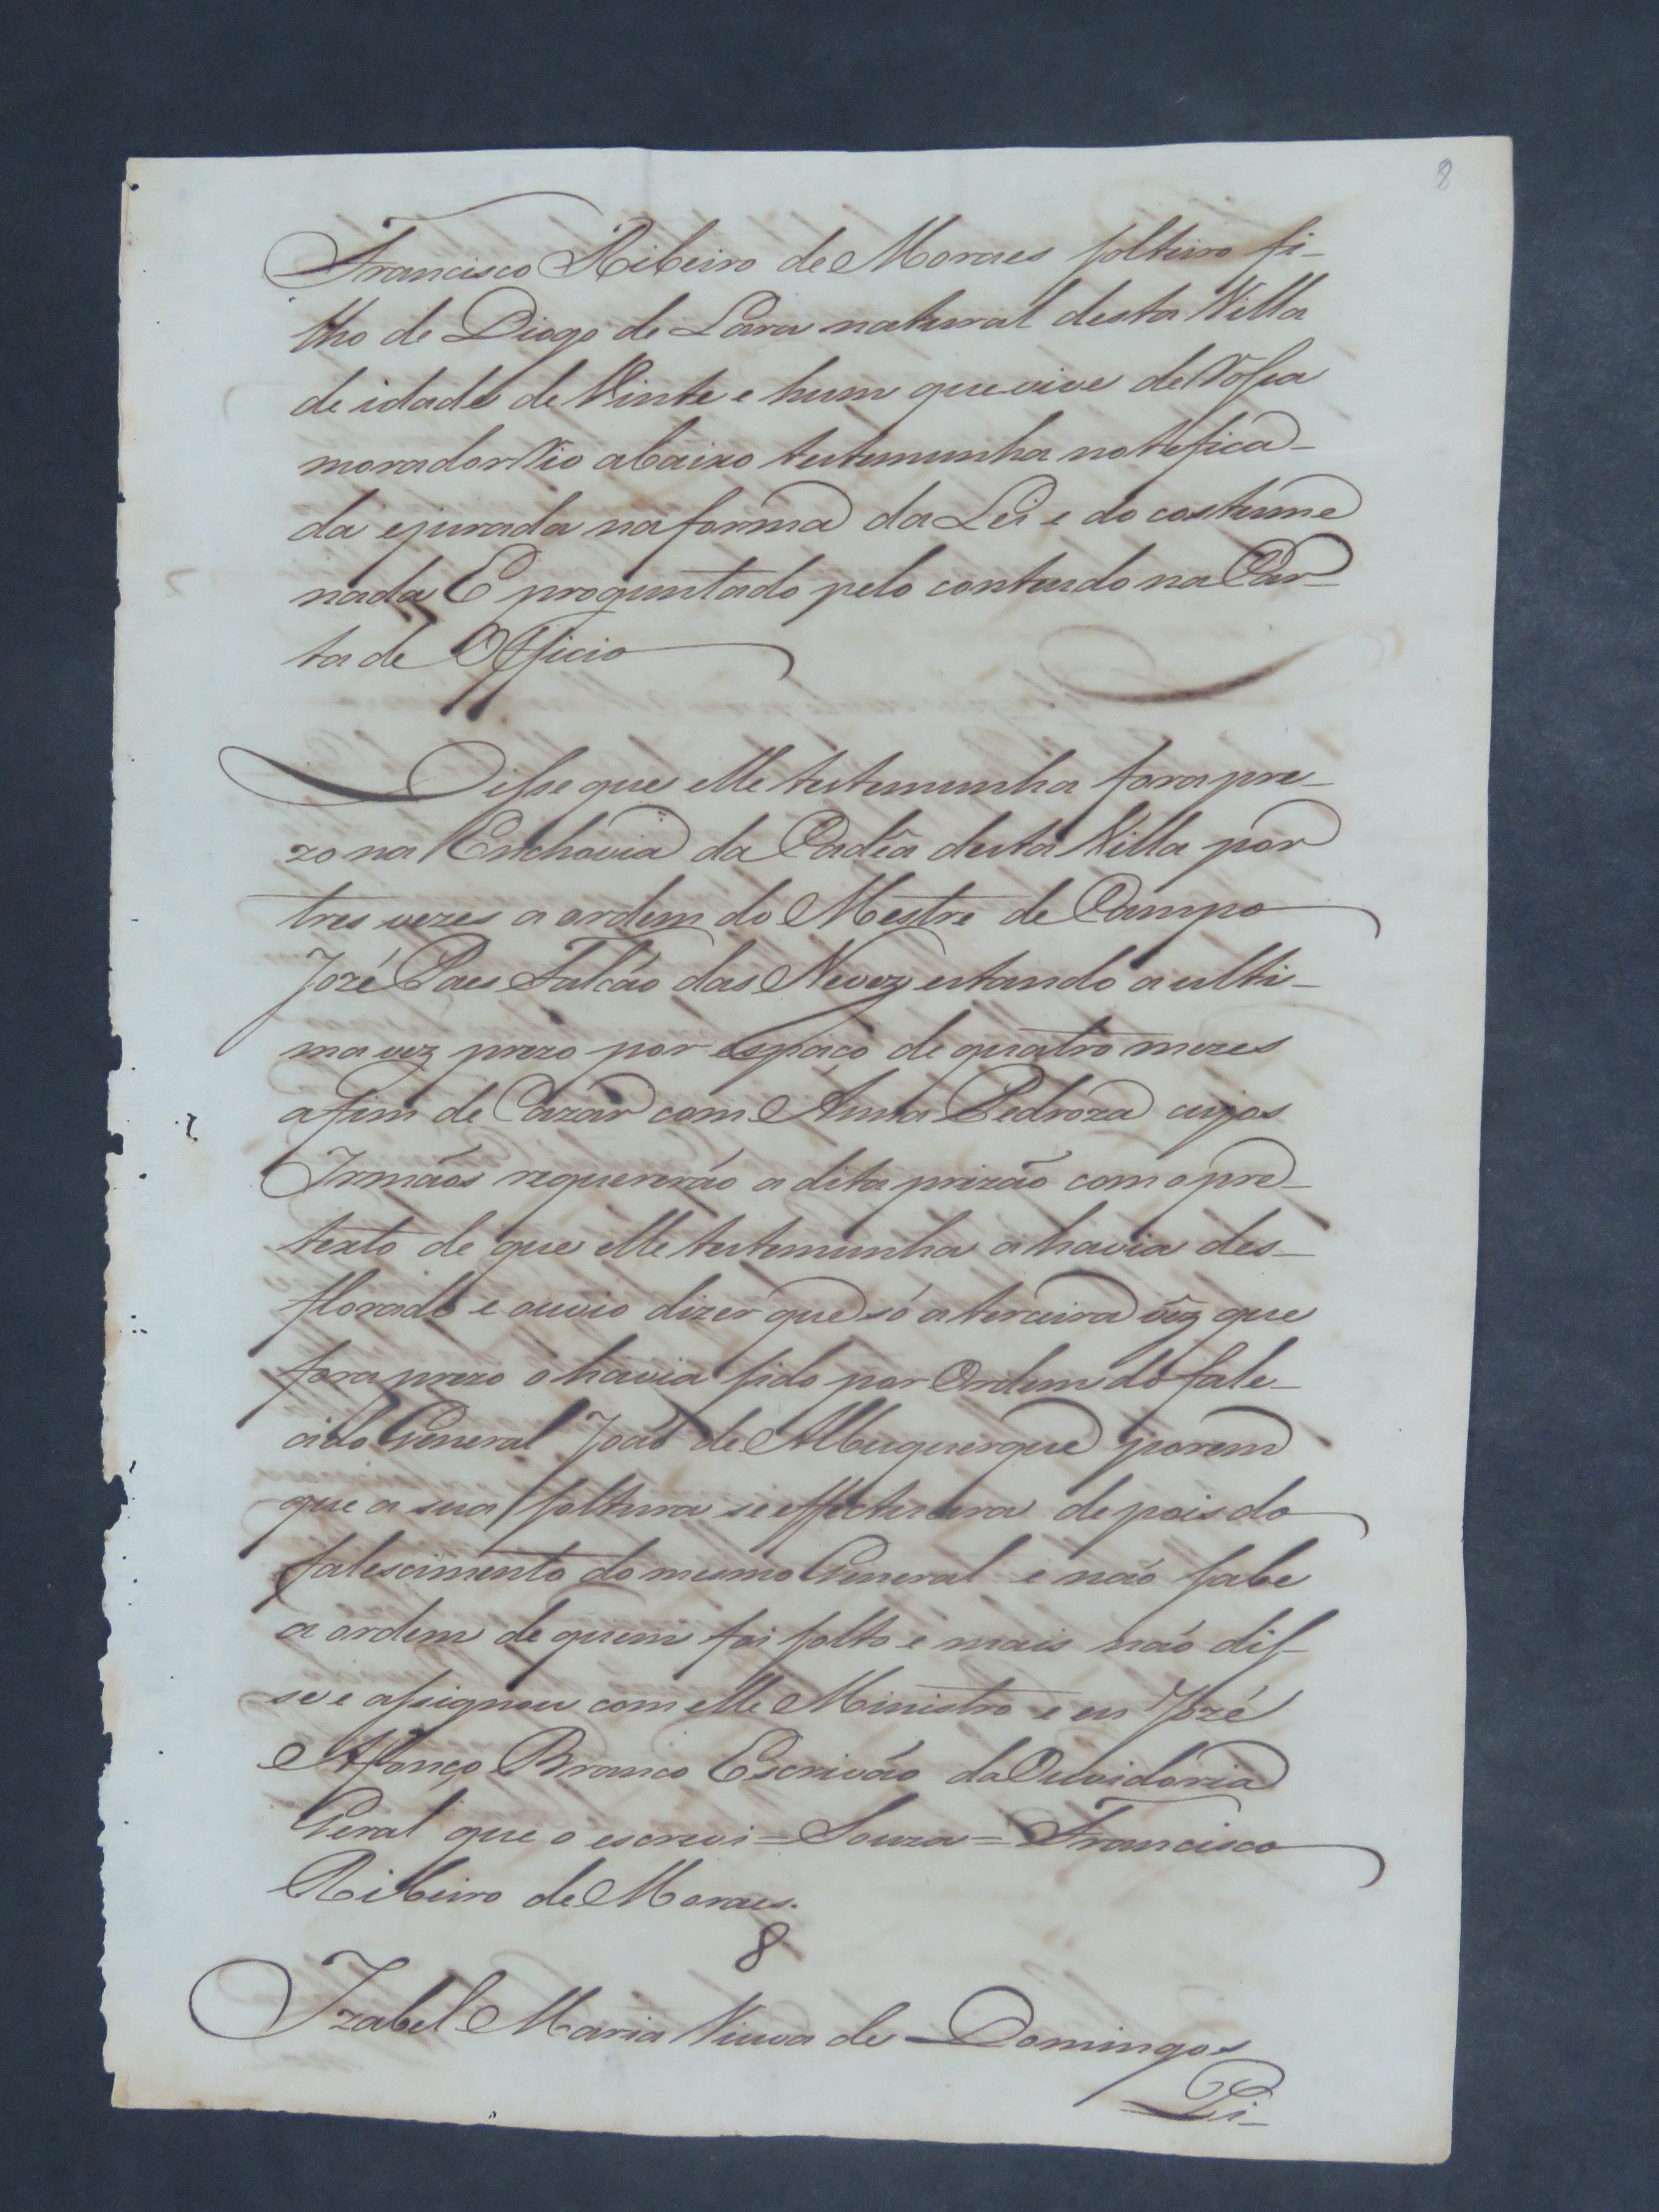 8
Francisco Ribeiro de Moraes solteiro fi-
lho de Diogo de Lara natural desta Villa
de idade de Vinte e hum que vive de Rossa
morador Rio abaixo testemunha notefica-
da ejurada na forma da Lei e do costume
nada E proguntado pelo contendo na Car-
ta de Officio
Disse que elle testemunha fora pre-
zo na Enchovia da Cadêa desta Villa por
tres vezes a ordem do Mestre de Campo
Jozé Paes Falcão das Nevez estando a ulti-
ma vez prezo por espaço de quatro mezes
afim de Cazar com Anna Pedroza cujos
Irmãos requererão a dita prizão com o pre-
texto de que elle testemunha a havia des-
florado e ouvio dizer que só a terceira vez que
fora prezo o havia sido por Ordem do fale-
cido General João de Albuquerque porem
que a sua soltura se effectuara depois do
falescimento do mesmo General e não sabe
a ordem de quem foi solto e mais não dis-
se e assignou com elle Ministro e eu Jozé
Afonço Branco Escrivão da Ouvidoria
Geral que o escrevi = Souza = Francisco
Ribeiro de Moraes.
8
Izabel Maria Viuva de Domingos